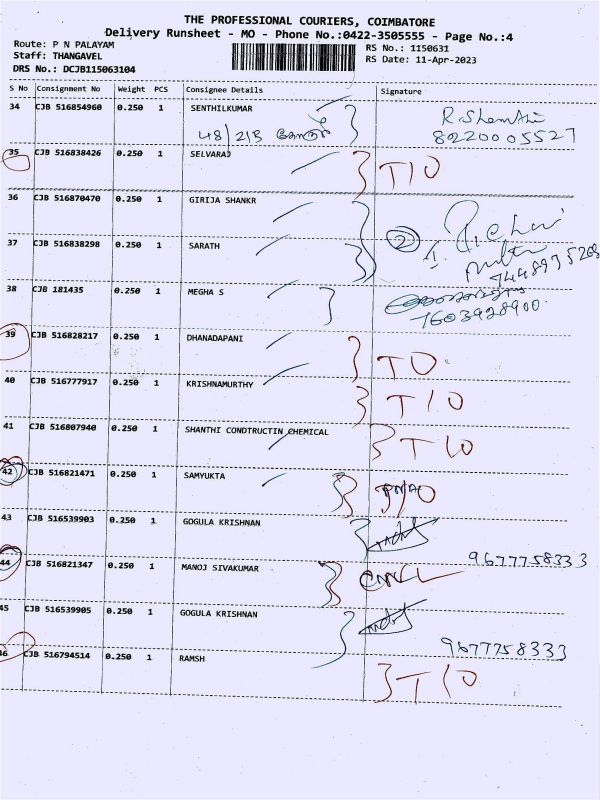 THE PROFESSIONAL COURIERS, COIMBATORE
Delivery Runsheet - MO - Phone No.:0422-3505555 - Page No.:4
Route: P N PALAYAM
RS No.: 1150631
Staff: THANGAVEL
RS Date: 11-Apr-2023
DRS No.: DCJB115063104
S No Consignment No Weight PCS Consignee Details Signature
34 CJB 516854960 0.250 1 SENTHILKUMAR
48/21B
80220005527
35 CJB 516838426 0.250 1 SELVARAJ T10
36 CJB 516870470 0.250 1 GIRIJA SHANKR
2
37 CJB 516838298 0.250 1 SARATH
38 CJB 181435 0.250 1 MEGHA S
7603928900
39 CJB 516828217 0.250 1 DHANADAPANI TO
40 CJB 516777917 0.250 1 KRISHNAMURTHY T10
41 CJB 516807940 0.250 1 SHANTHI CONDTRUCTIN CHEMICAL T10
42 CJB 516821471 0.250 1 SAMYUKTA
43 CJB 516539903 0.250 1 GOGULA KRISHNAN
9677758333
44 CJB 516821347 0.250 1 MANOJ SIVAKUMAR
45 CJB 516539905 0.250 1 GOGULA KRISHNAN
9677758333
46 CJB 516794514 0.250 1 RAMSH T10